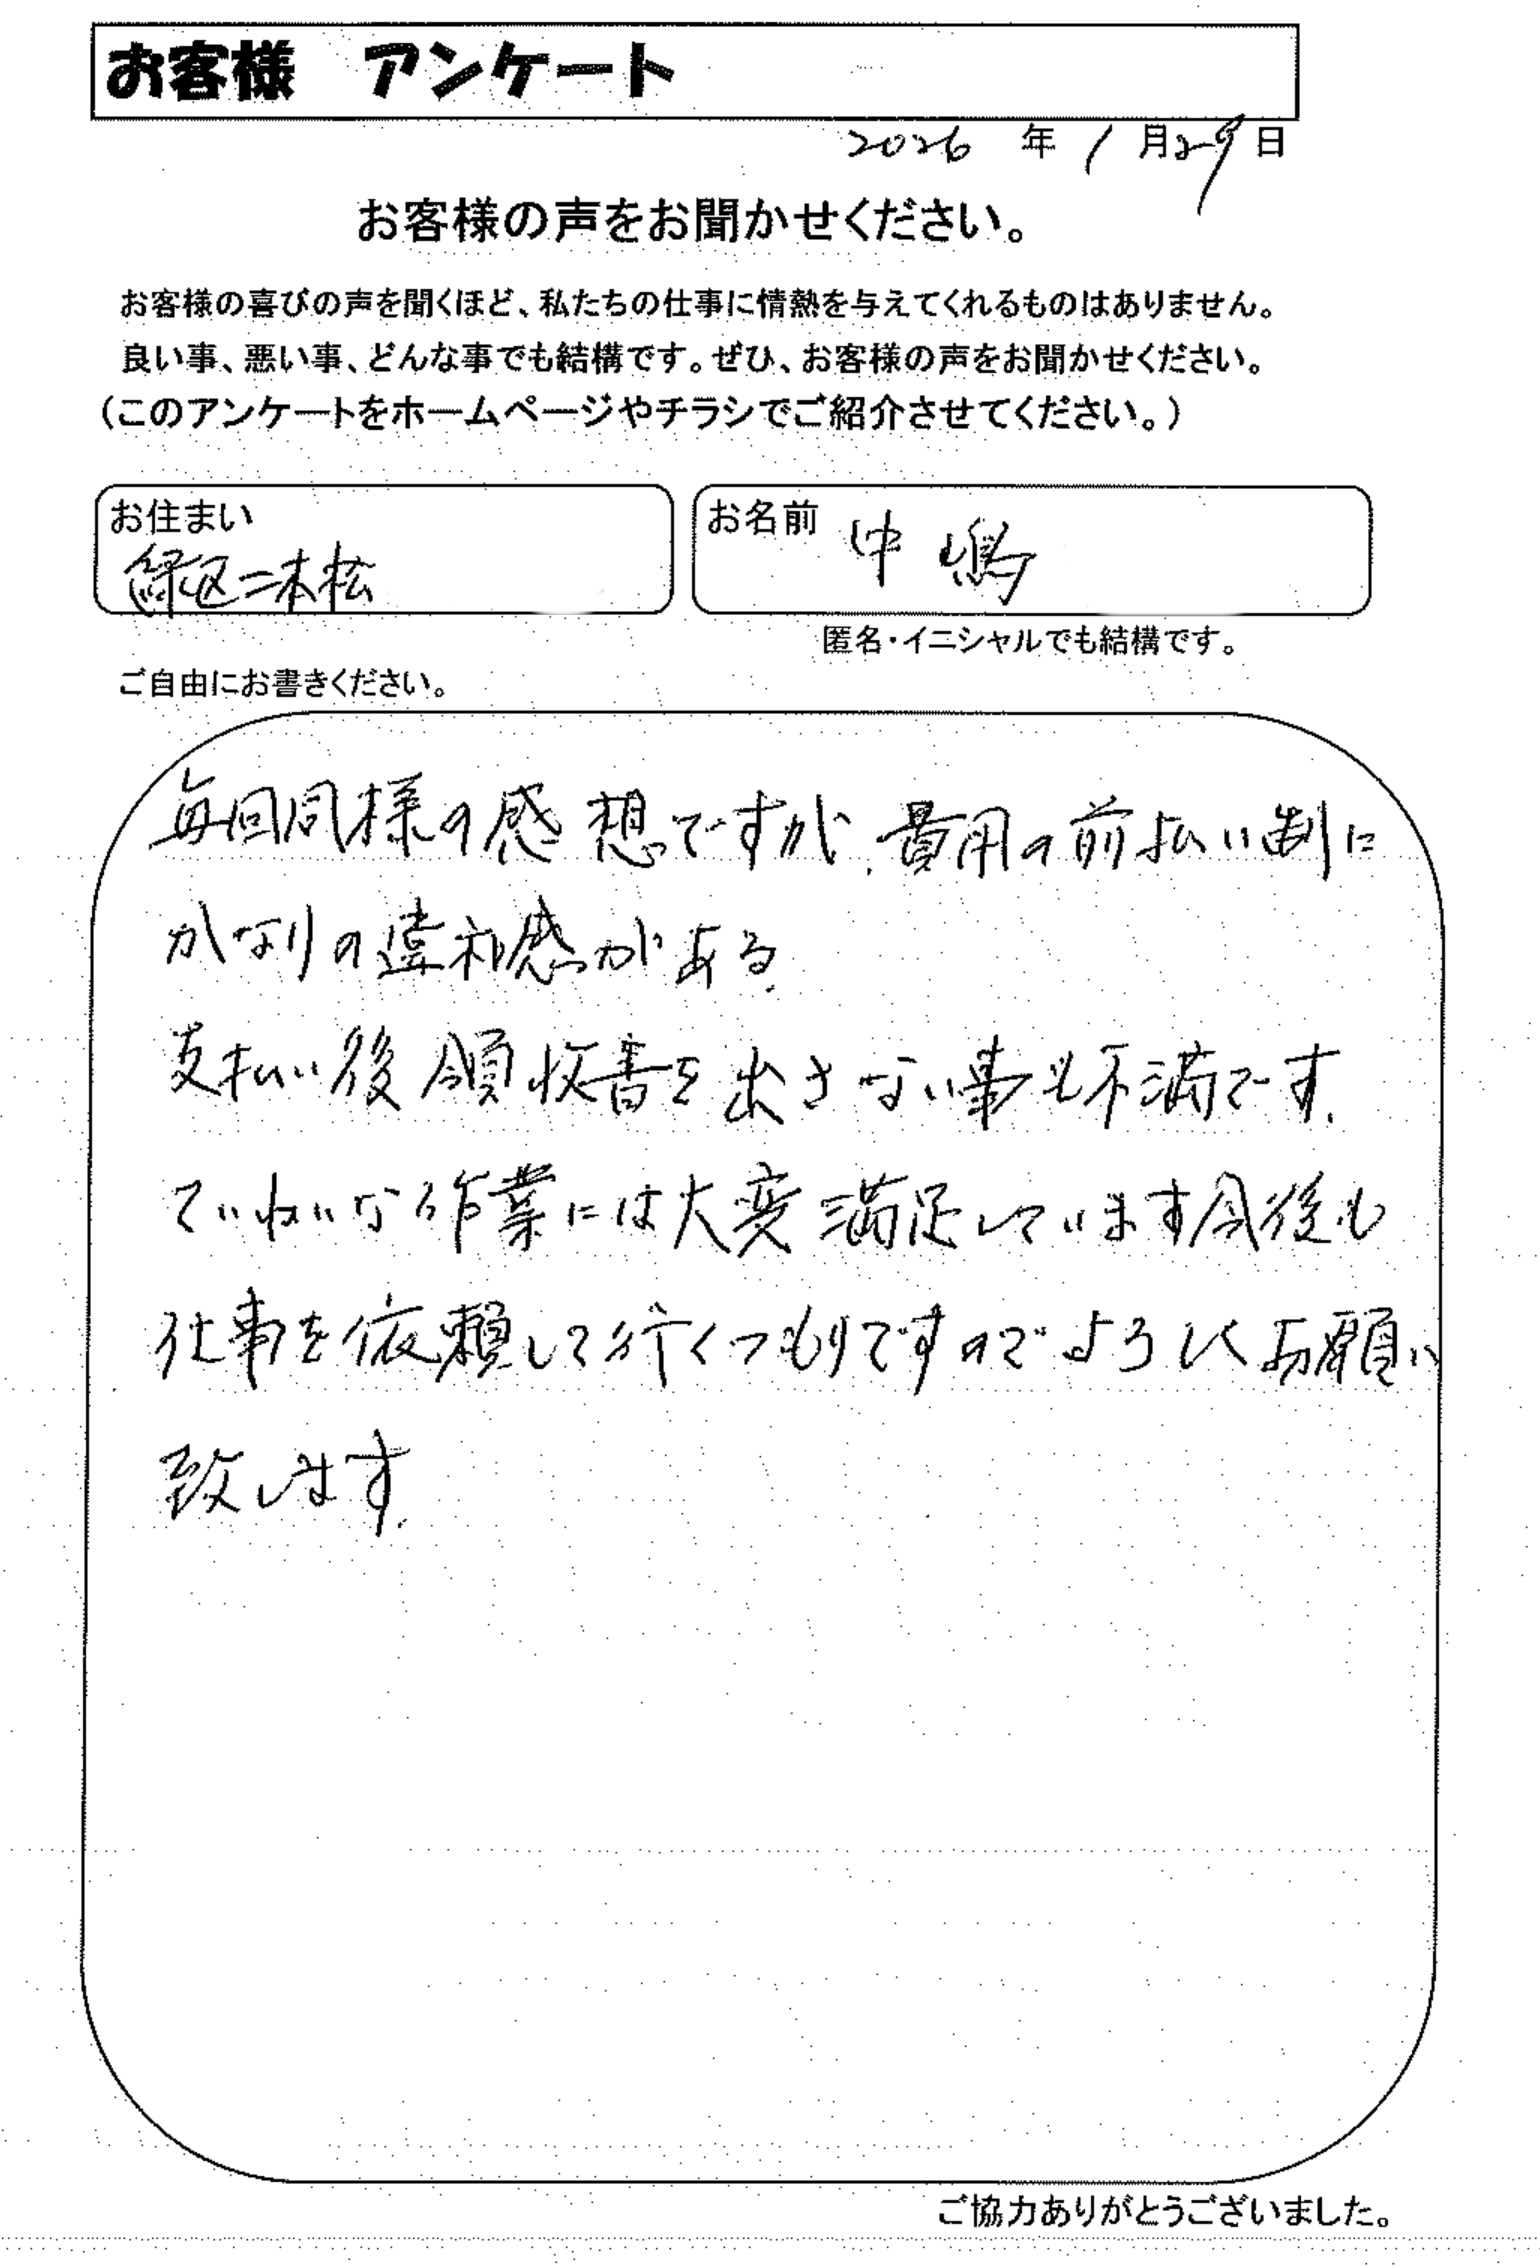 お客様　アンケート
2026 年 1 月 29 日
お客様の声をお聞かせください。
お客様の喜びの声を聞くほど、私たちの仕事に情熱を与えてくれるものはありません。
良い事、悪い事、どんな事でも結構です。ぜひ、お客様の声をお聞かせください。
（このアンケートをホームページやチラシでご紹介させてください。）
お住まい
緑区二本松
お名前 中嶋
匿名・イニシャルでも結構です。
ご自由にお書きください。
毎回同様の感想ですが、費用の前払い制に
かなりの違和感がある。
支払い後領収書を出さない事も不満です。
ていねいな作業には大変満足しています今後も
仕事を依頼して行くつもりですのでよろしくお願い
致します。
ご協力ありがとうございました。